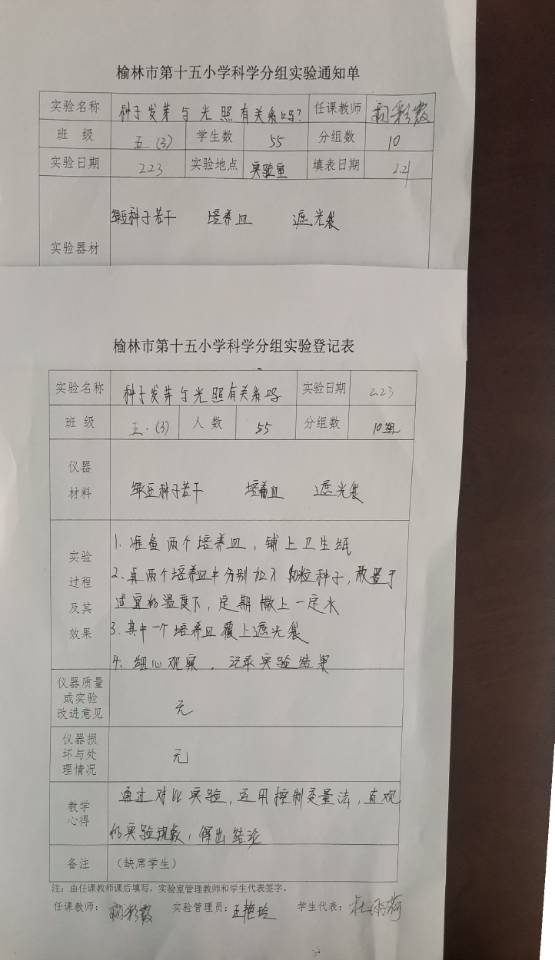 榆林市第十五小学科学分组实验通知单
实验名称 种子发芽与光照有关系吗? 任课教师
班 级 五(3) 学生数 55 分组数 10
实验日期 2.23 实验地点 实验室 填表日期 2.21
绿豆种子若干 培养皿 遮光袋
实验器材
榆林市第十五小学科学分组实验登记表
实验名称 种子发芽与光照有关系吗 实验日期 2.23
班 级 五.(3) 人 数 55 分组数 10组
仪器
材料 绿豆种子若干 培养皿 遮光袋
实验
过程
及其
效果
1. 准备两个培养皿,铺上卫生纸
2. 在两个培养皿中分别放入 种子,放置于
适宜的温度下,定期撒上一定水
3. 其中一个培养皿覆上遮光袋
4. 细心观察,记录实验结果
仪器质量
或实验
改进意见 无
仪器损
坏与处
理情况 无
教学
心得
通过对比实验,运用控制变量法,直观
的实验现象,得出结论
备注 (缺席学生)
注:由任课教师课后填写,实验室管理教师和学生代表签字。
任课教师: 实验管理员:王艳玲 学生代表: